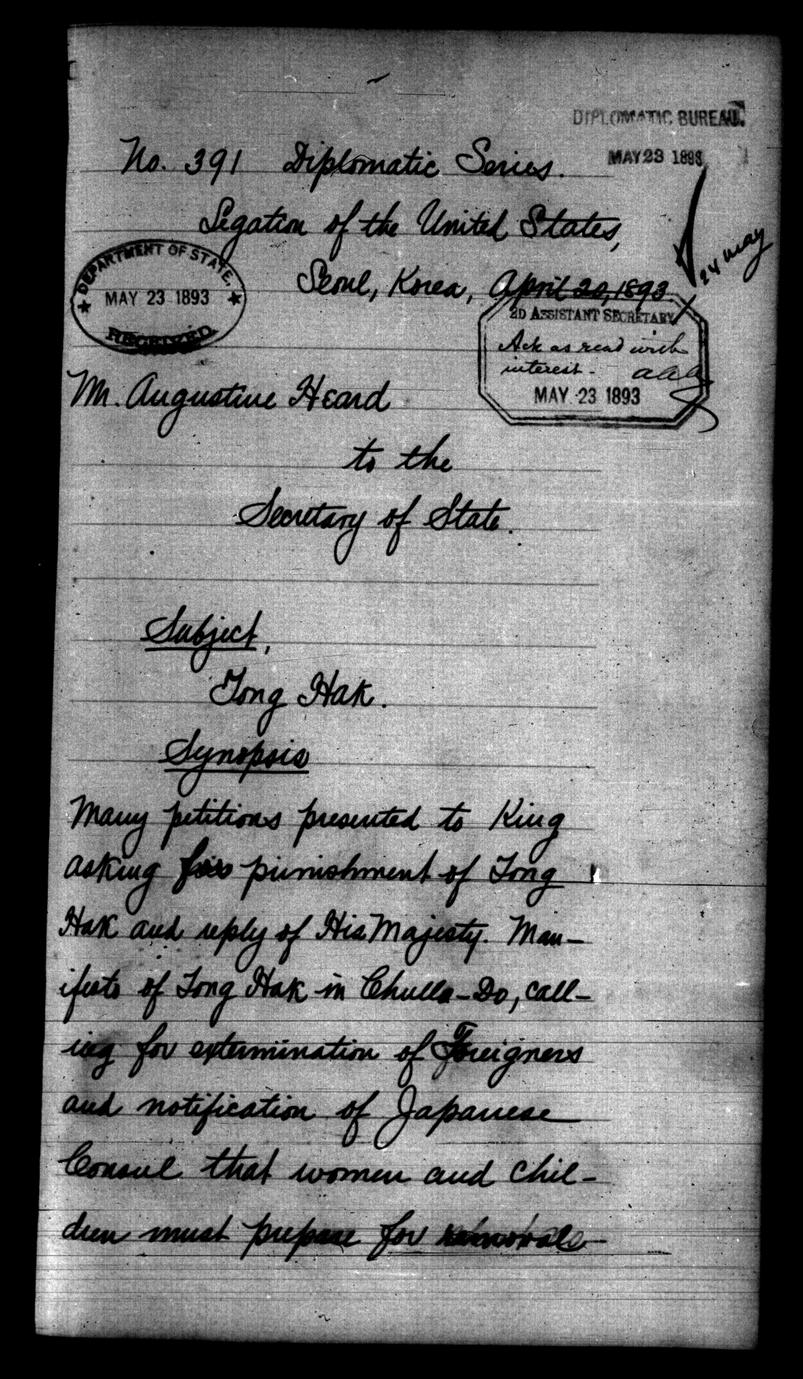 DIPLOMATIC BUREAU.
MAY 23 1893
No. 391 Diplomatic Series.
Legation of the United States,
24 May
DEPARTMENT OF STATE.
MAY 23 1893
RECEIVED
Seoul, Korea, April 20, 1893.
2D ASSISTANT SECRETARY
Ack as read with
interest. aaa
MAY 23 1893
Mr. Augustine Heard
to the
Secretary of State.
Subject,
Tong Hak.
Synopsis
Many petitions presented to King
asking for punishment of Tong
Hak and reply of His Majesty. Man-
ifesto of Tong Hak in Chulla-Do, call-
ing for extermination of Foreigners
and notification of Japanese
Consul that women and chil-
dren must prepare for removal